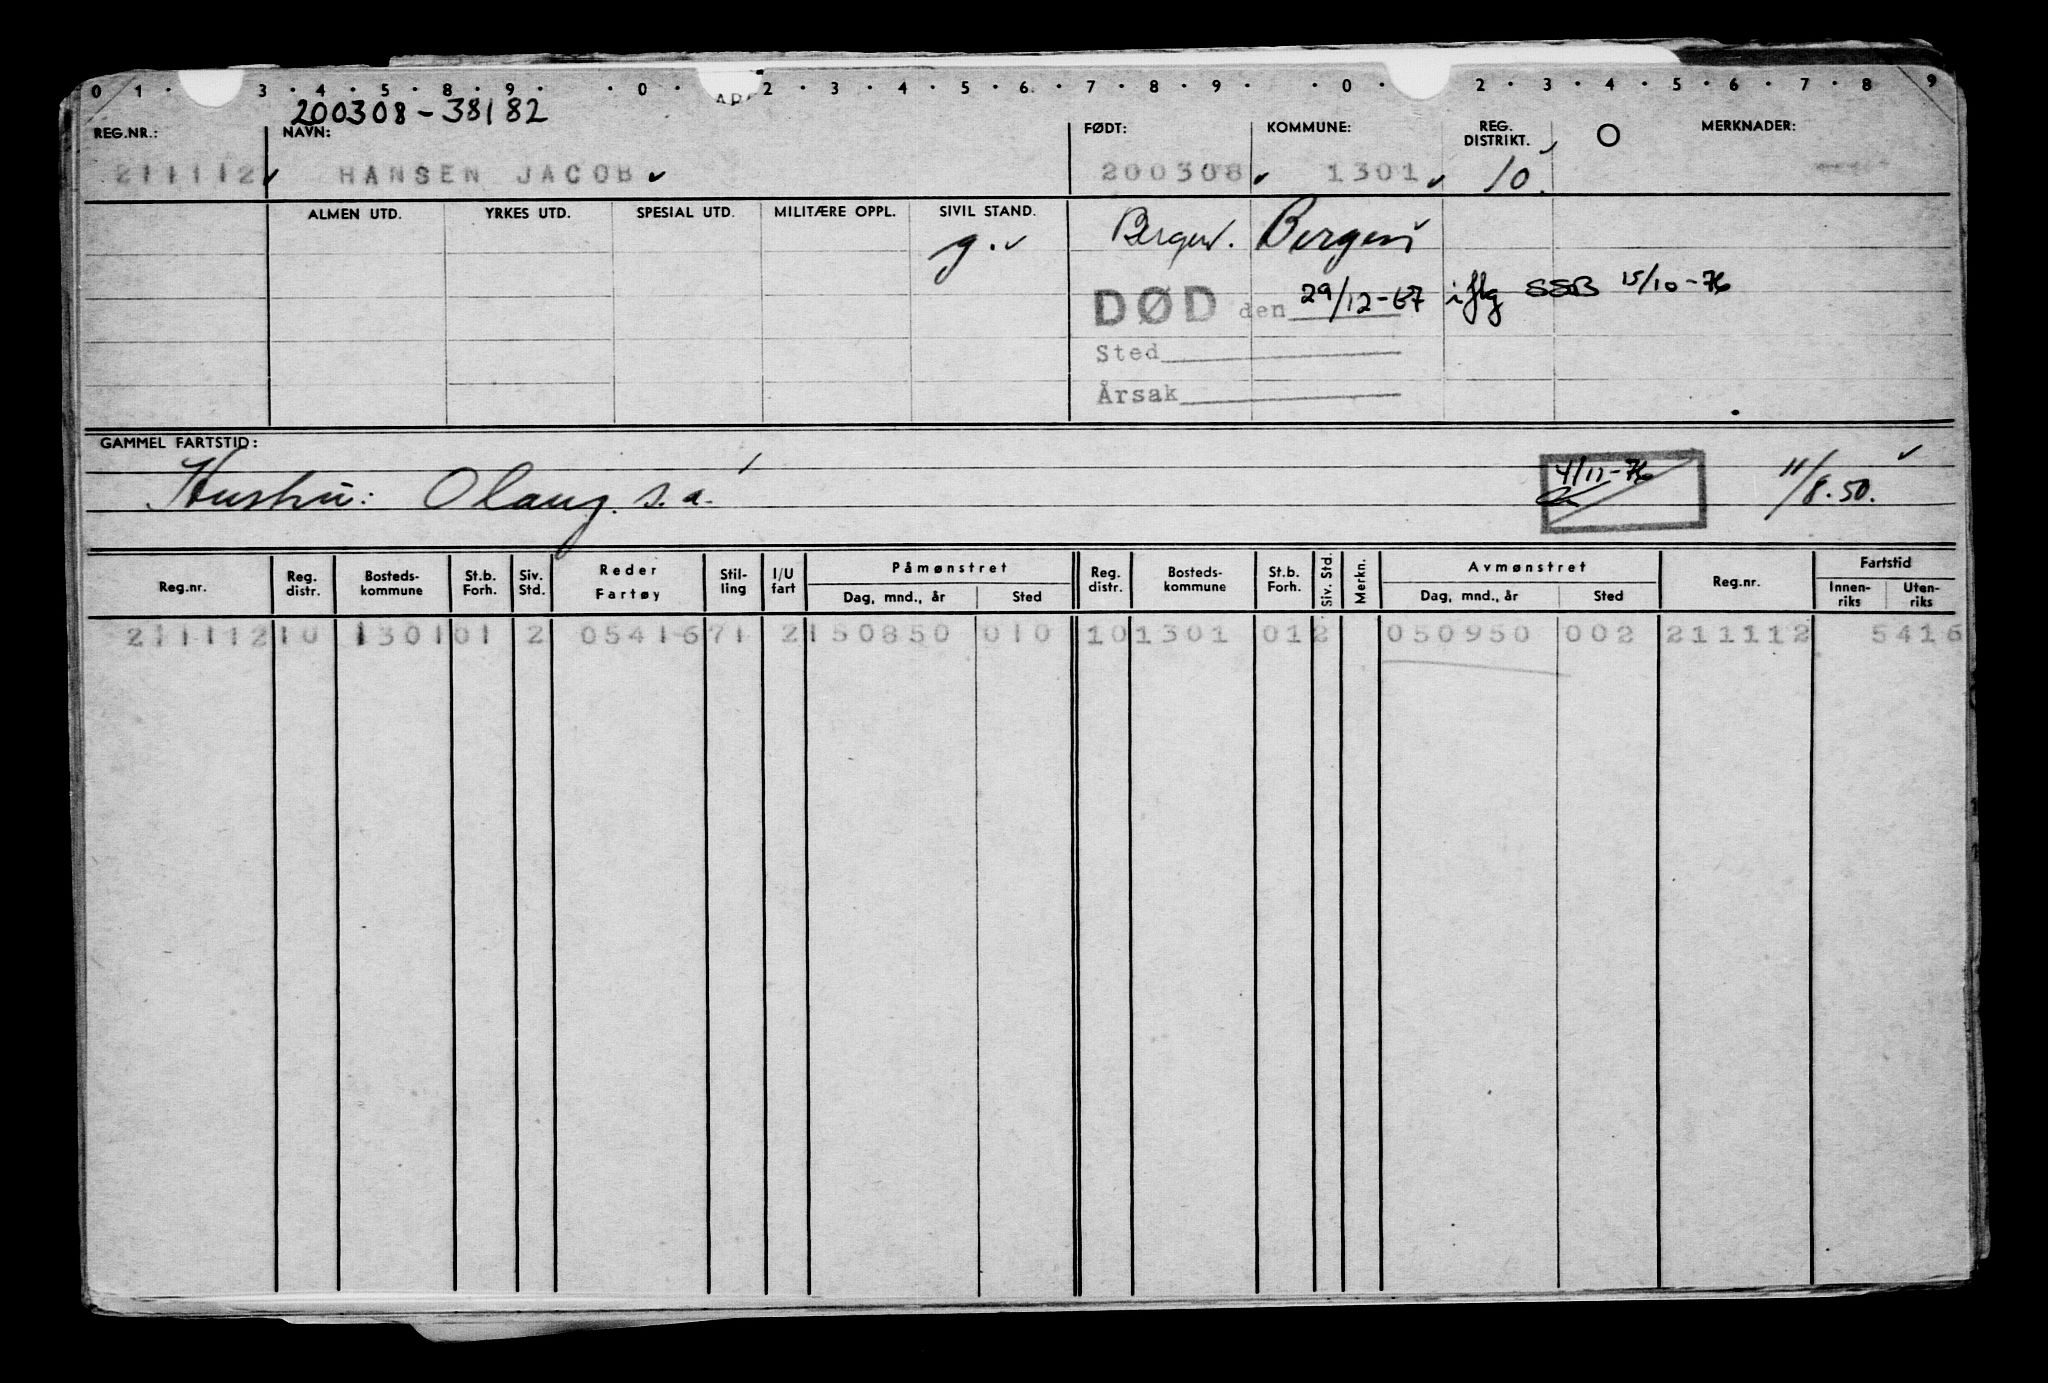 0 1 · 3 · 4 · 5 · 8 · 9 · · 0 · 2 · 3 · 4 · 5 · 6 · 7 · 8 · 9 · · 0 · 2 · 3 · 4 · 5 · 6 · 7 · 8 9
200308-38182
REG.NR.: NAVN: FØDT: KOMMUNE: REG. DISTRIKT. O MERKNADER:
211112 HANSEN JACOB 200308 1301 10
ALMEN UTD. YRKES UTD. SPESIAL UTD. MILITÆRE OPPL. SIVIL STAND.
g. Bergen. Bergen
DØD den 29/12-67 iflg SSB 15/10-76
Sted
Årsak
GAMMEL FARTSTID:
Hustru: Olaug s.a. 4/11-76 11/8.50.
Reg.nr. Reg. distr. Bosteds-kommune St.b. Forh. Siv. Std. Reder Fartøy Stil-ling I/U fart Påmønstret Dag, mnd., år Sted Reg. distr. Bosteds-kommune St.b. Forh. Siv. Std. Merkn. Avmønstret Dag, mnd., år Sted Reg.nr. Fartstid Innen-riks Uten-riks
211112 10 1301 01 2 05416 71 2 150850 010 10 1301 01 2 050950 002 211112 5416